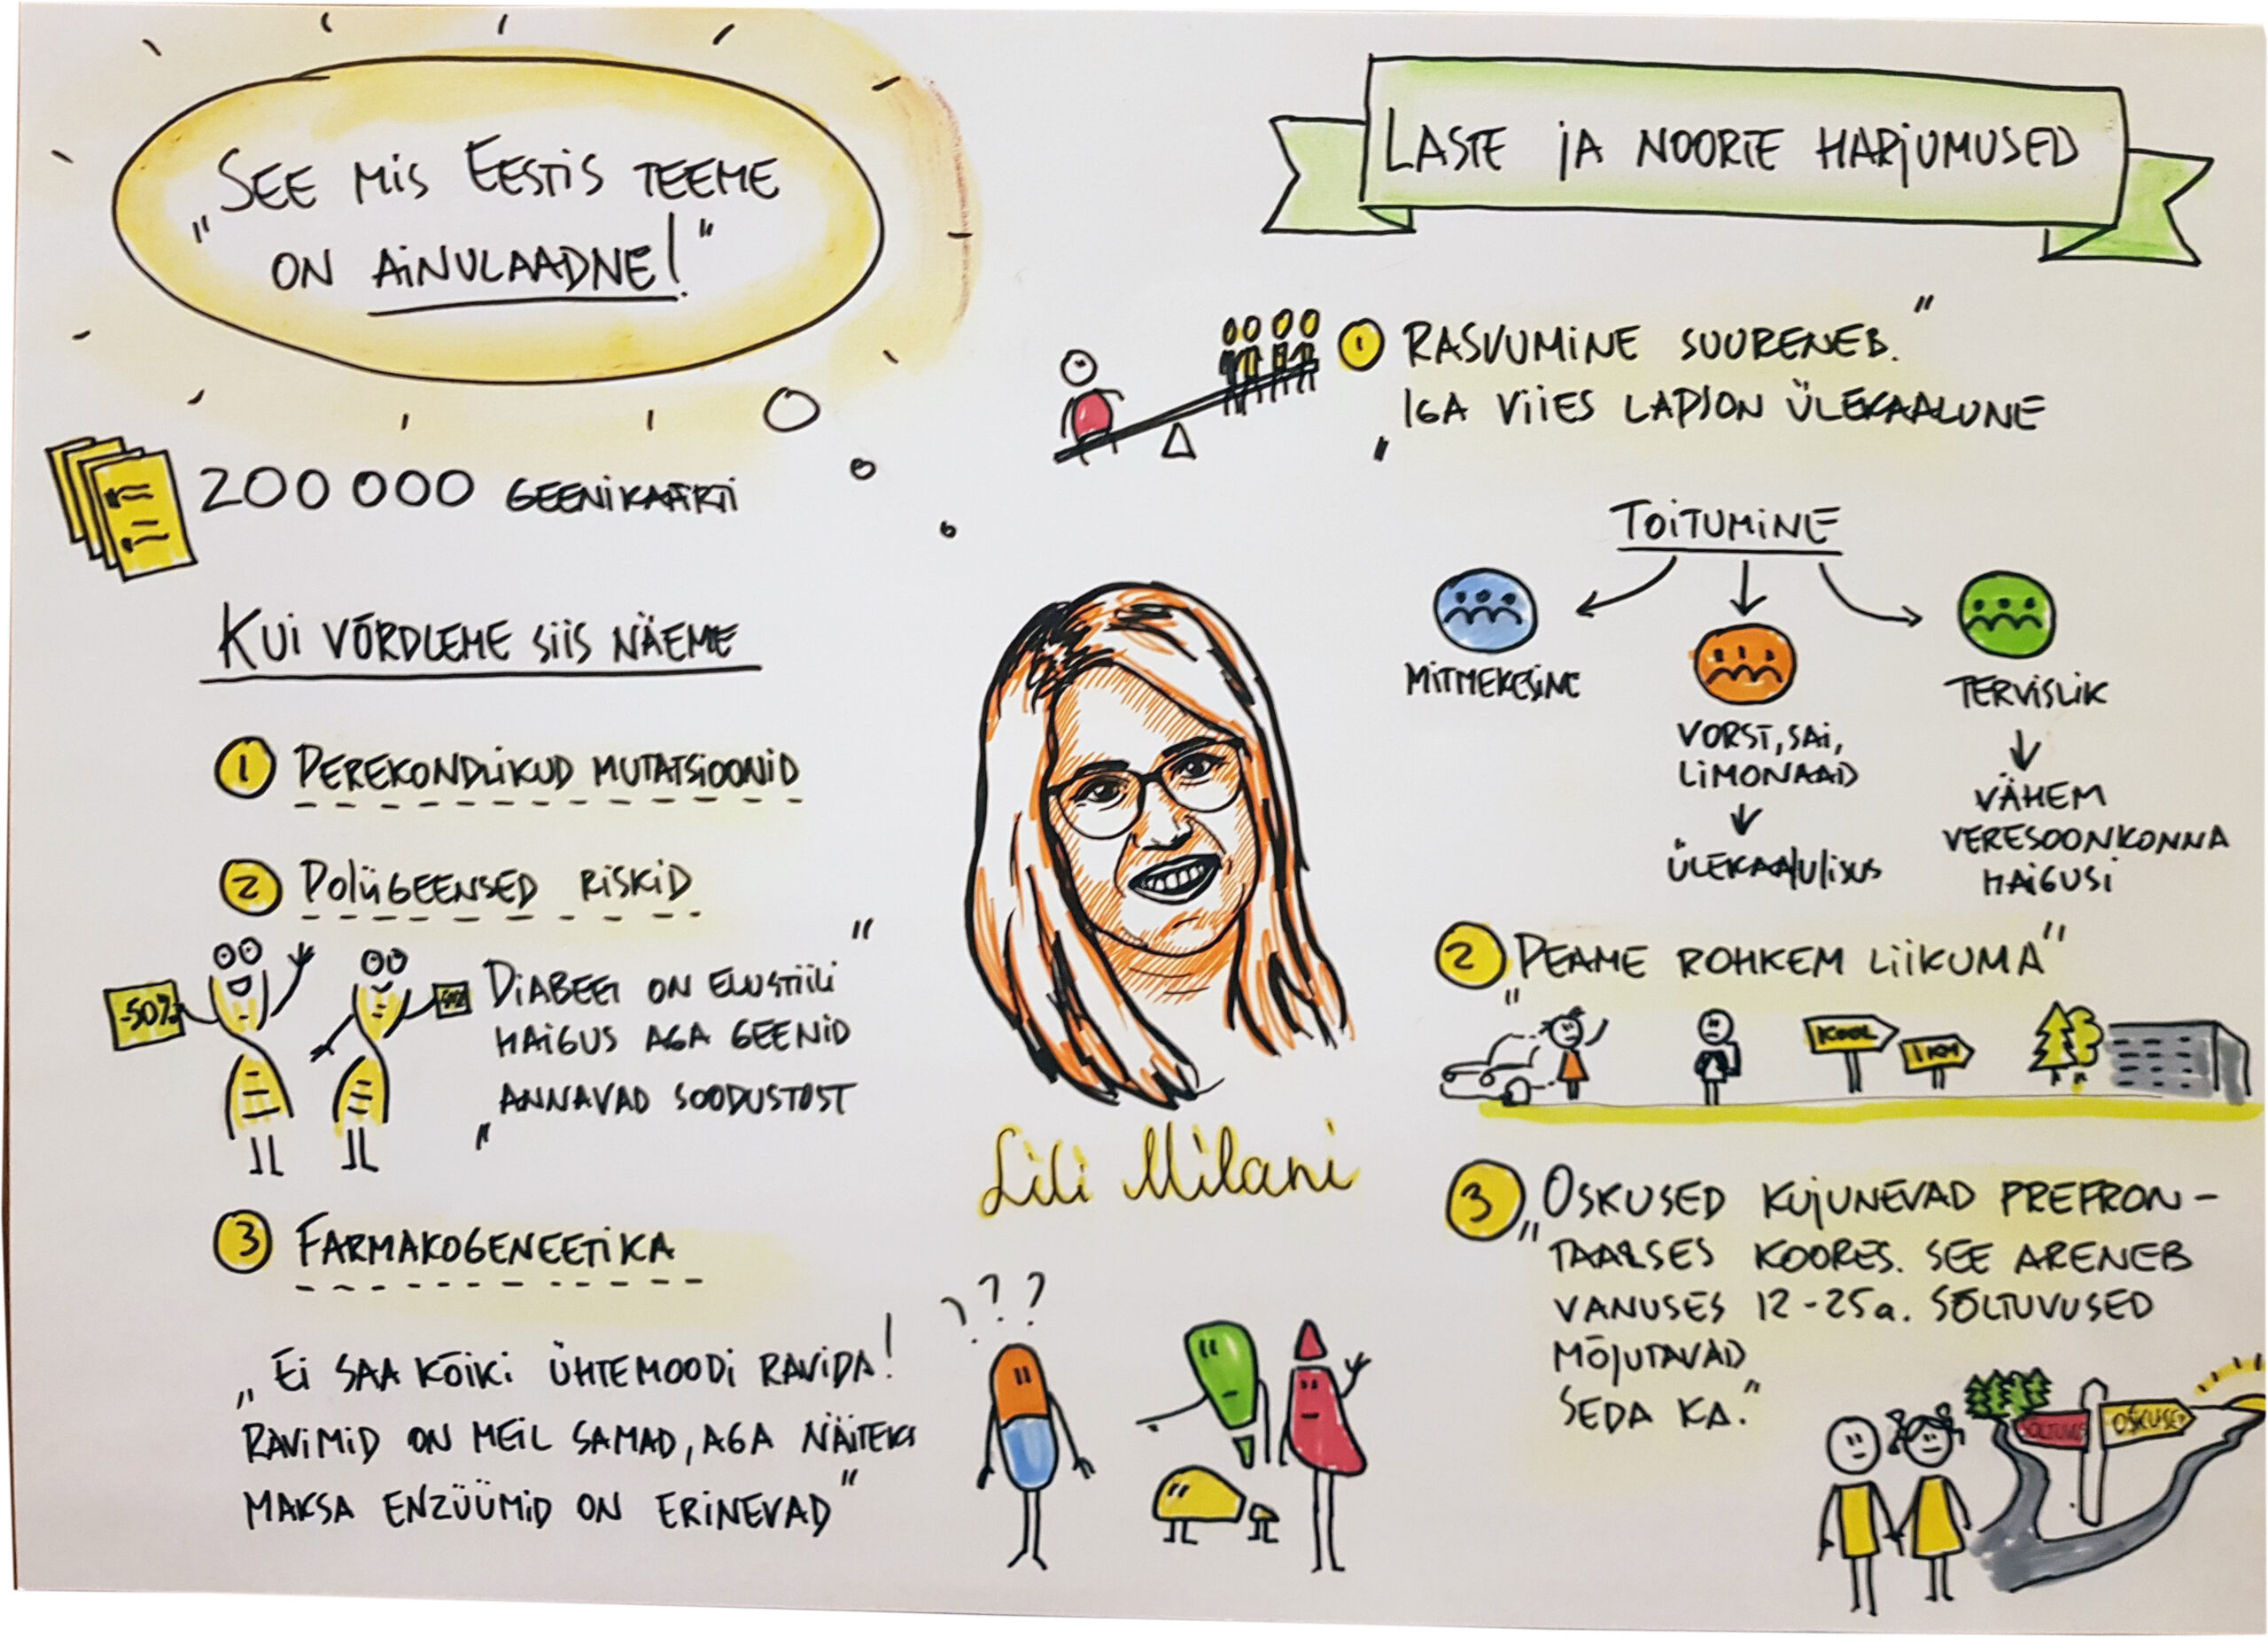 „SEE MIS EESTIS TEEME
ON AINULAADNE!"
200 000 GEENIKAARTI
KUI VÕRDLEME SIIS NÄEME
1 PEREKONDLIKUD MUTATSIOONID
2 POLÜGEENSED RISKID
-50%
„DIABEET ON ELUSTIILI
HAIGUS AGA GEENID
ANNAVAD SOODUSTUST"
3 FARMAKOGENEETIKA
„EI SAA KÕIKI ÜHTEMOODI RAVIDA!
RAVIMID ON MEIL SAMAD, AGA NÄITEKS
MAKSA ENZÜÜMID ON ERINEVAD"
Lili Milani
???
LASTE JA NOORTE HARJUMUSED
1 „RASVUMINE SUURENEB.
IGA VIIES LAPS ON ÜLEKAALUNE"
TOITUMINE
MITMEKESINE
VORST, SAI,
LIMONAAD
ÜLEKAALULISUS
TERVISLIK
VÄHEM
VERESOONKONNA
HAIGUSI
2 „PEAME ROHKEM LIIKUMA"
KOOL
1 KM
3 „OSKUSED KUJUNEVAD PREFRON-
TAALSES KOORES. SEE ARENEB
VANUSES 12-25a. SÕLTUVUSED
MÕJUTAVAD
SEDA KA."
SÕLTUVUS
OSKUSED